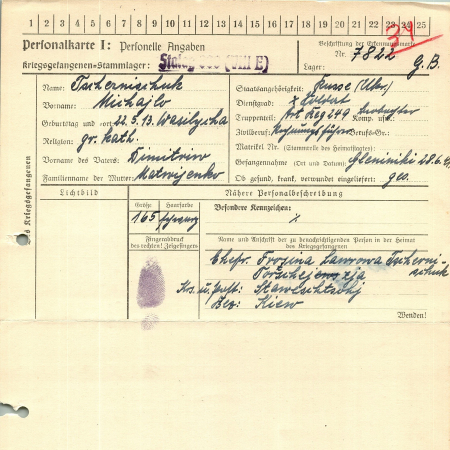 1 2 3 4 5 6 7 8 9 10 11 12 13 14 15 16 17 18 19 20 21 22 23 24 25
Personalkarte I: Personelle Angaben
Kriegsgefangenen-Stammlager: Stalag (VIII E)
Beschriftung der Erkennungsmarke
Nr. 7822 G.B.
Lager:
Des Kriegsgefangenen
Name: Tschernischuk
Vorname: Michajlo
Geburtstag und -ort: 22.5.13. Wasilycha
Religion: gr. kath.
Vorname des Vaters: Dimitriw
Familienname der Mutter: Matwijenko
Staatsangehörigkeit: Russe (Ukr.)
Dienstgrad: Soldat
Truppenteil: Art Reg 249 Komp. usw.:
Zivilberuf: Rechnungsführer Berufs-Gr.:
Matrikel Nr. (Stammrolle des Heimatstaates):
Gefangennahme (Ort und Datum): 28.6.
Ob gesund, krank, verwundet eingeliefert: ges.
Lichtbild
Nähere Personalbeschreibung
Größe Haarfarbe
165 schwarz
Besondere Kennzeichen:
x
Fingerabdruck
des rechten! Zeigefingers
Name und Anschrift der zu benachrichtigenden Person in der Heimat
des Kriegsgefangenen
Ehefr. Frosina Lawrowa Tscherni-
schuk
Krs. u. Post: Stawischtschj
Bez: Kiew
Wenden!